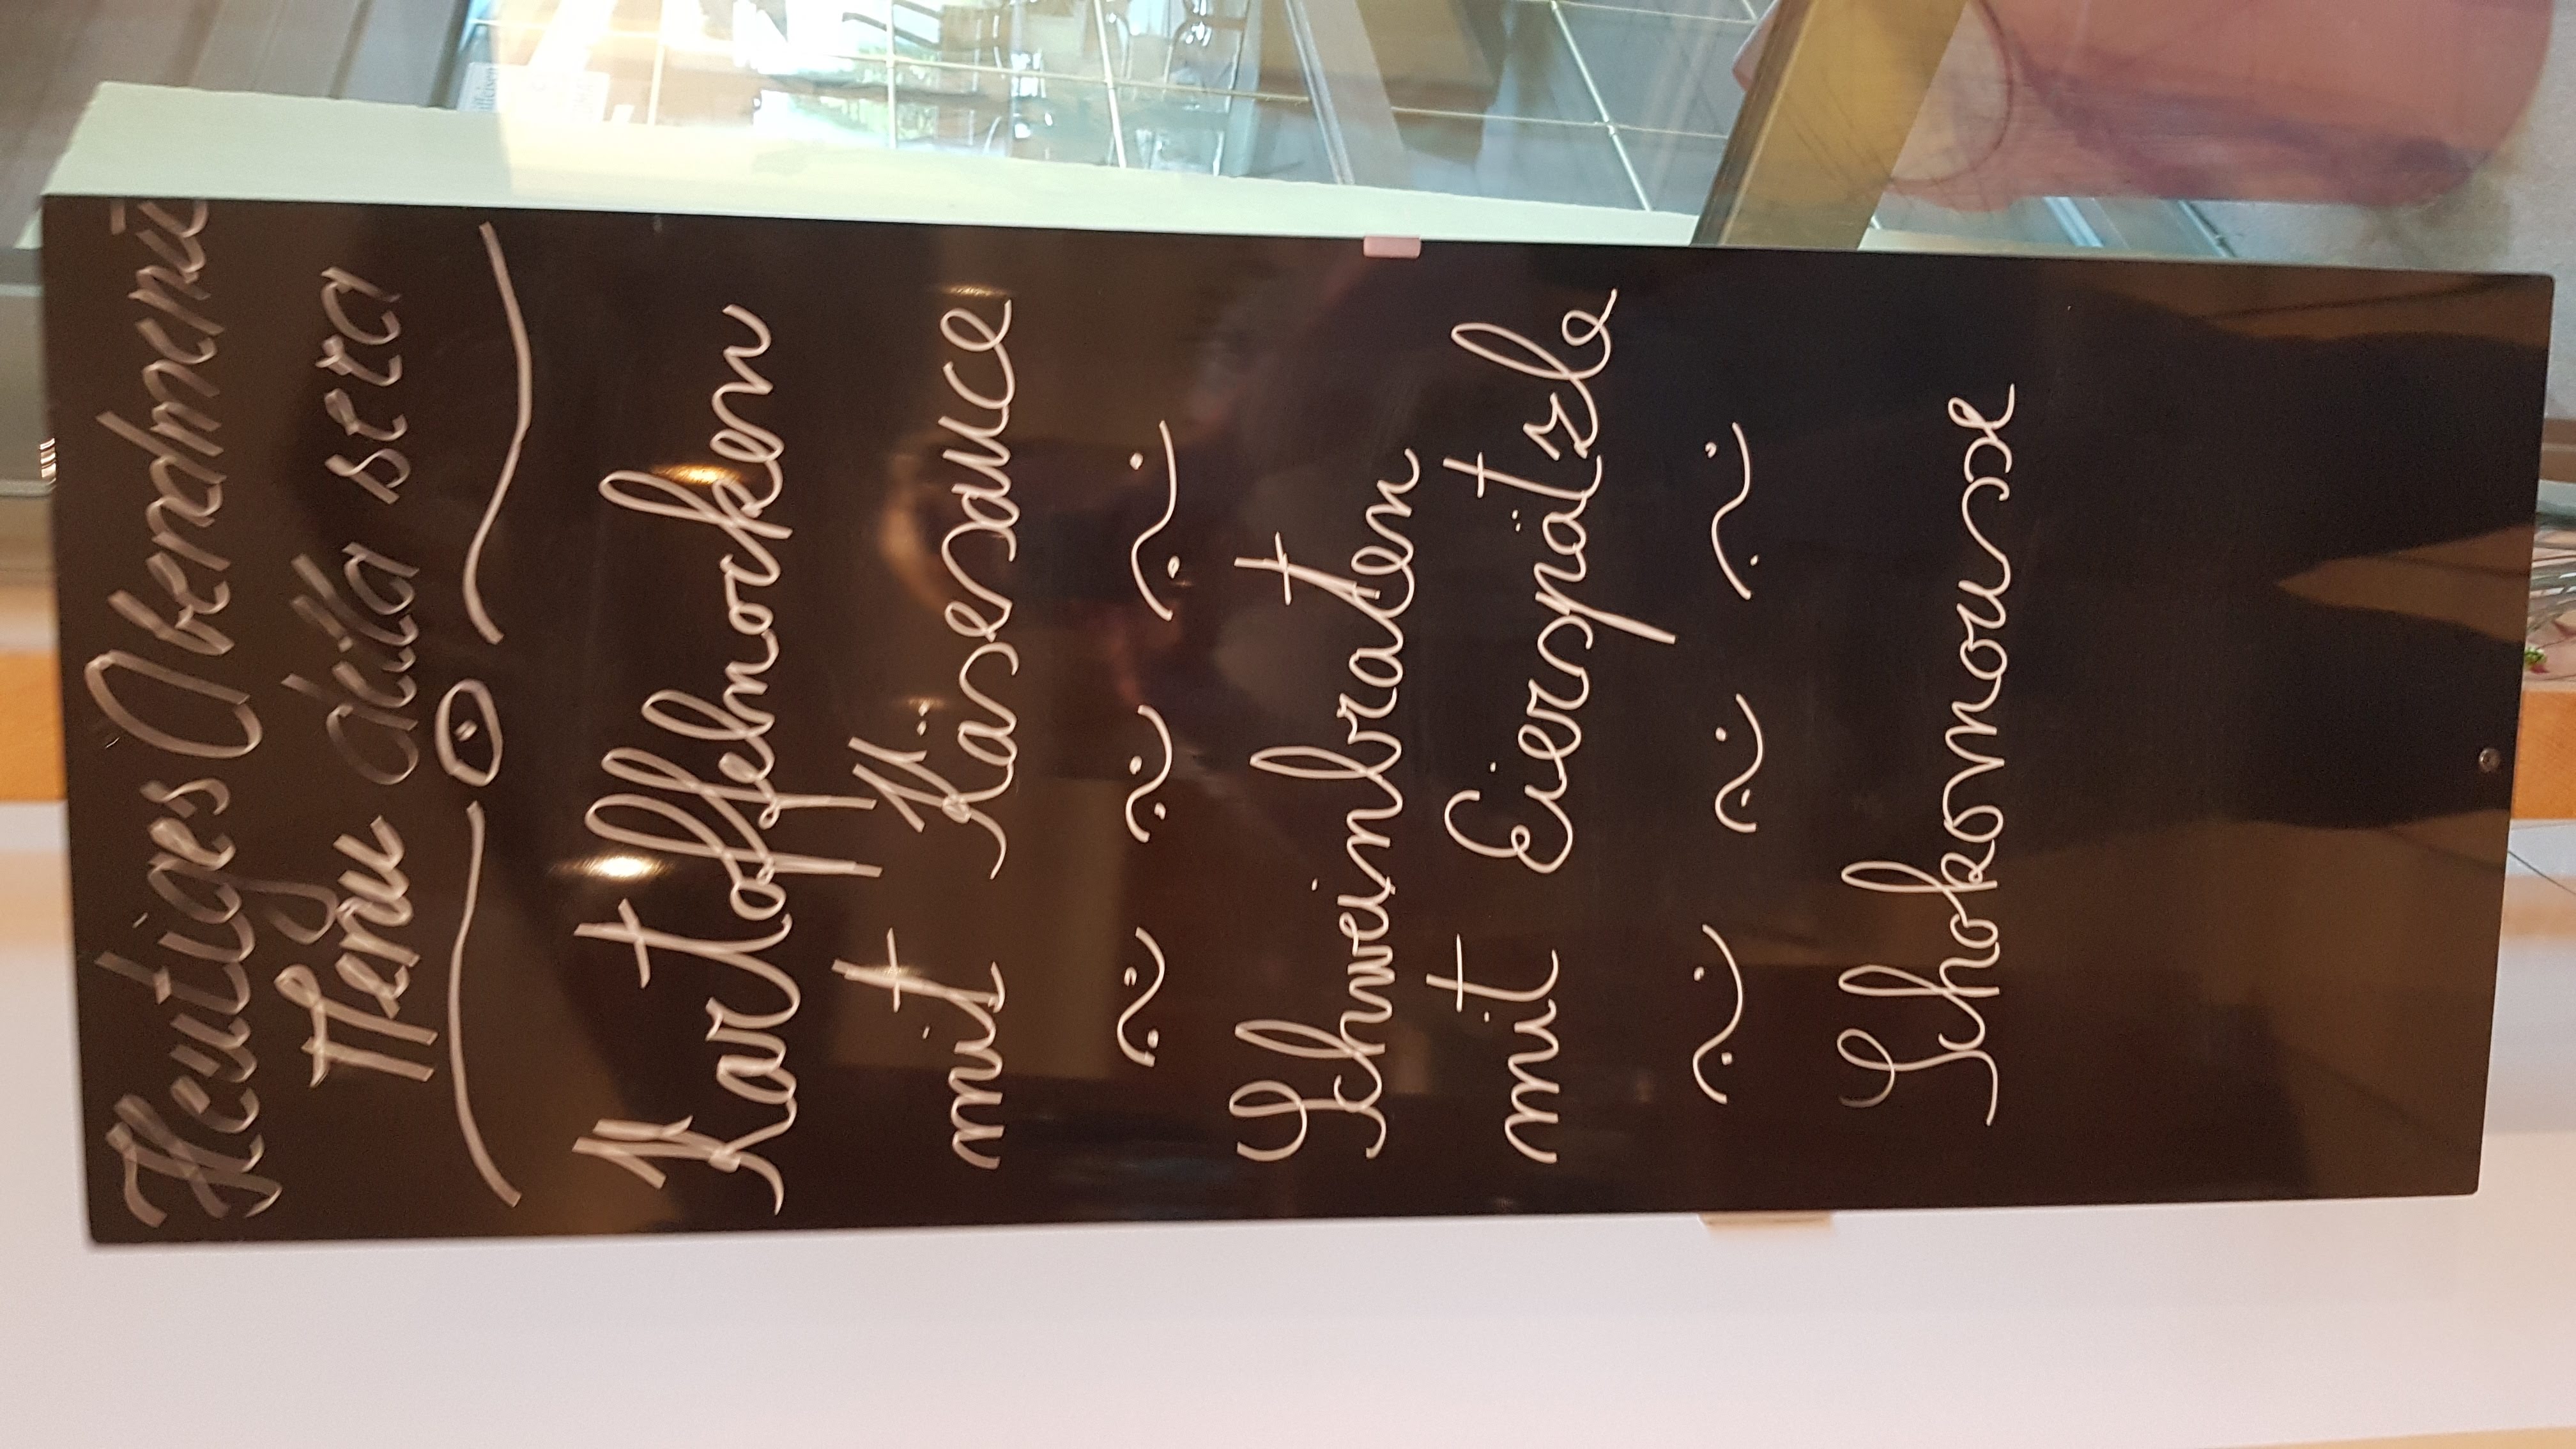 Heutiges Abendmenü
Menu della sera
Kartoffelnocken
mit Käsesauce
Schweinbraten
mit Eierspätzle
Schokomousse